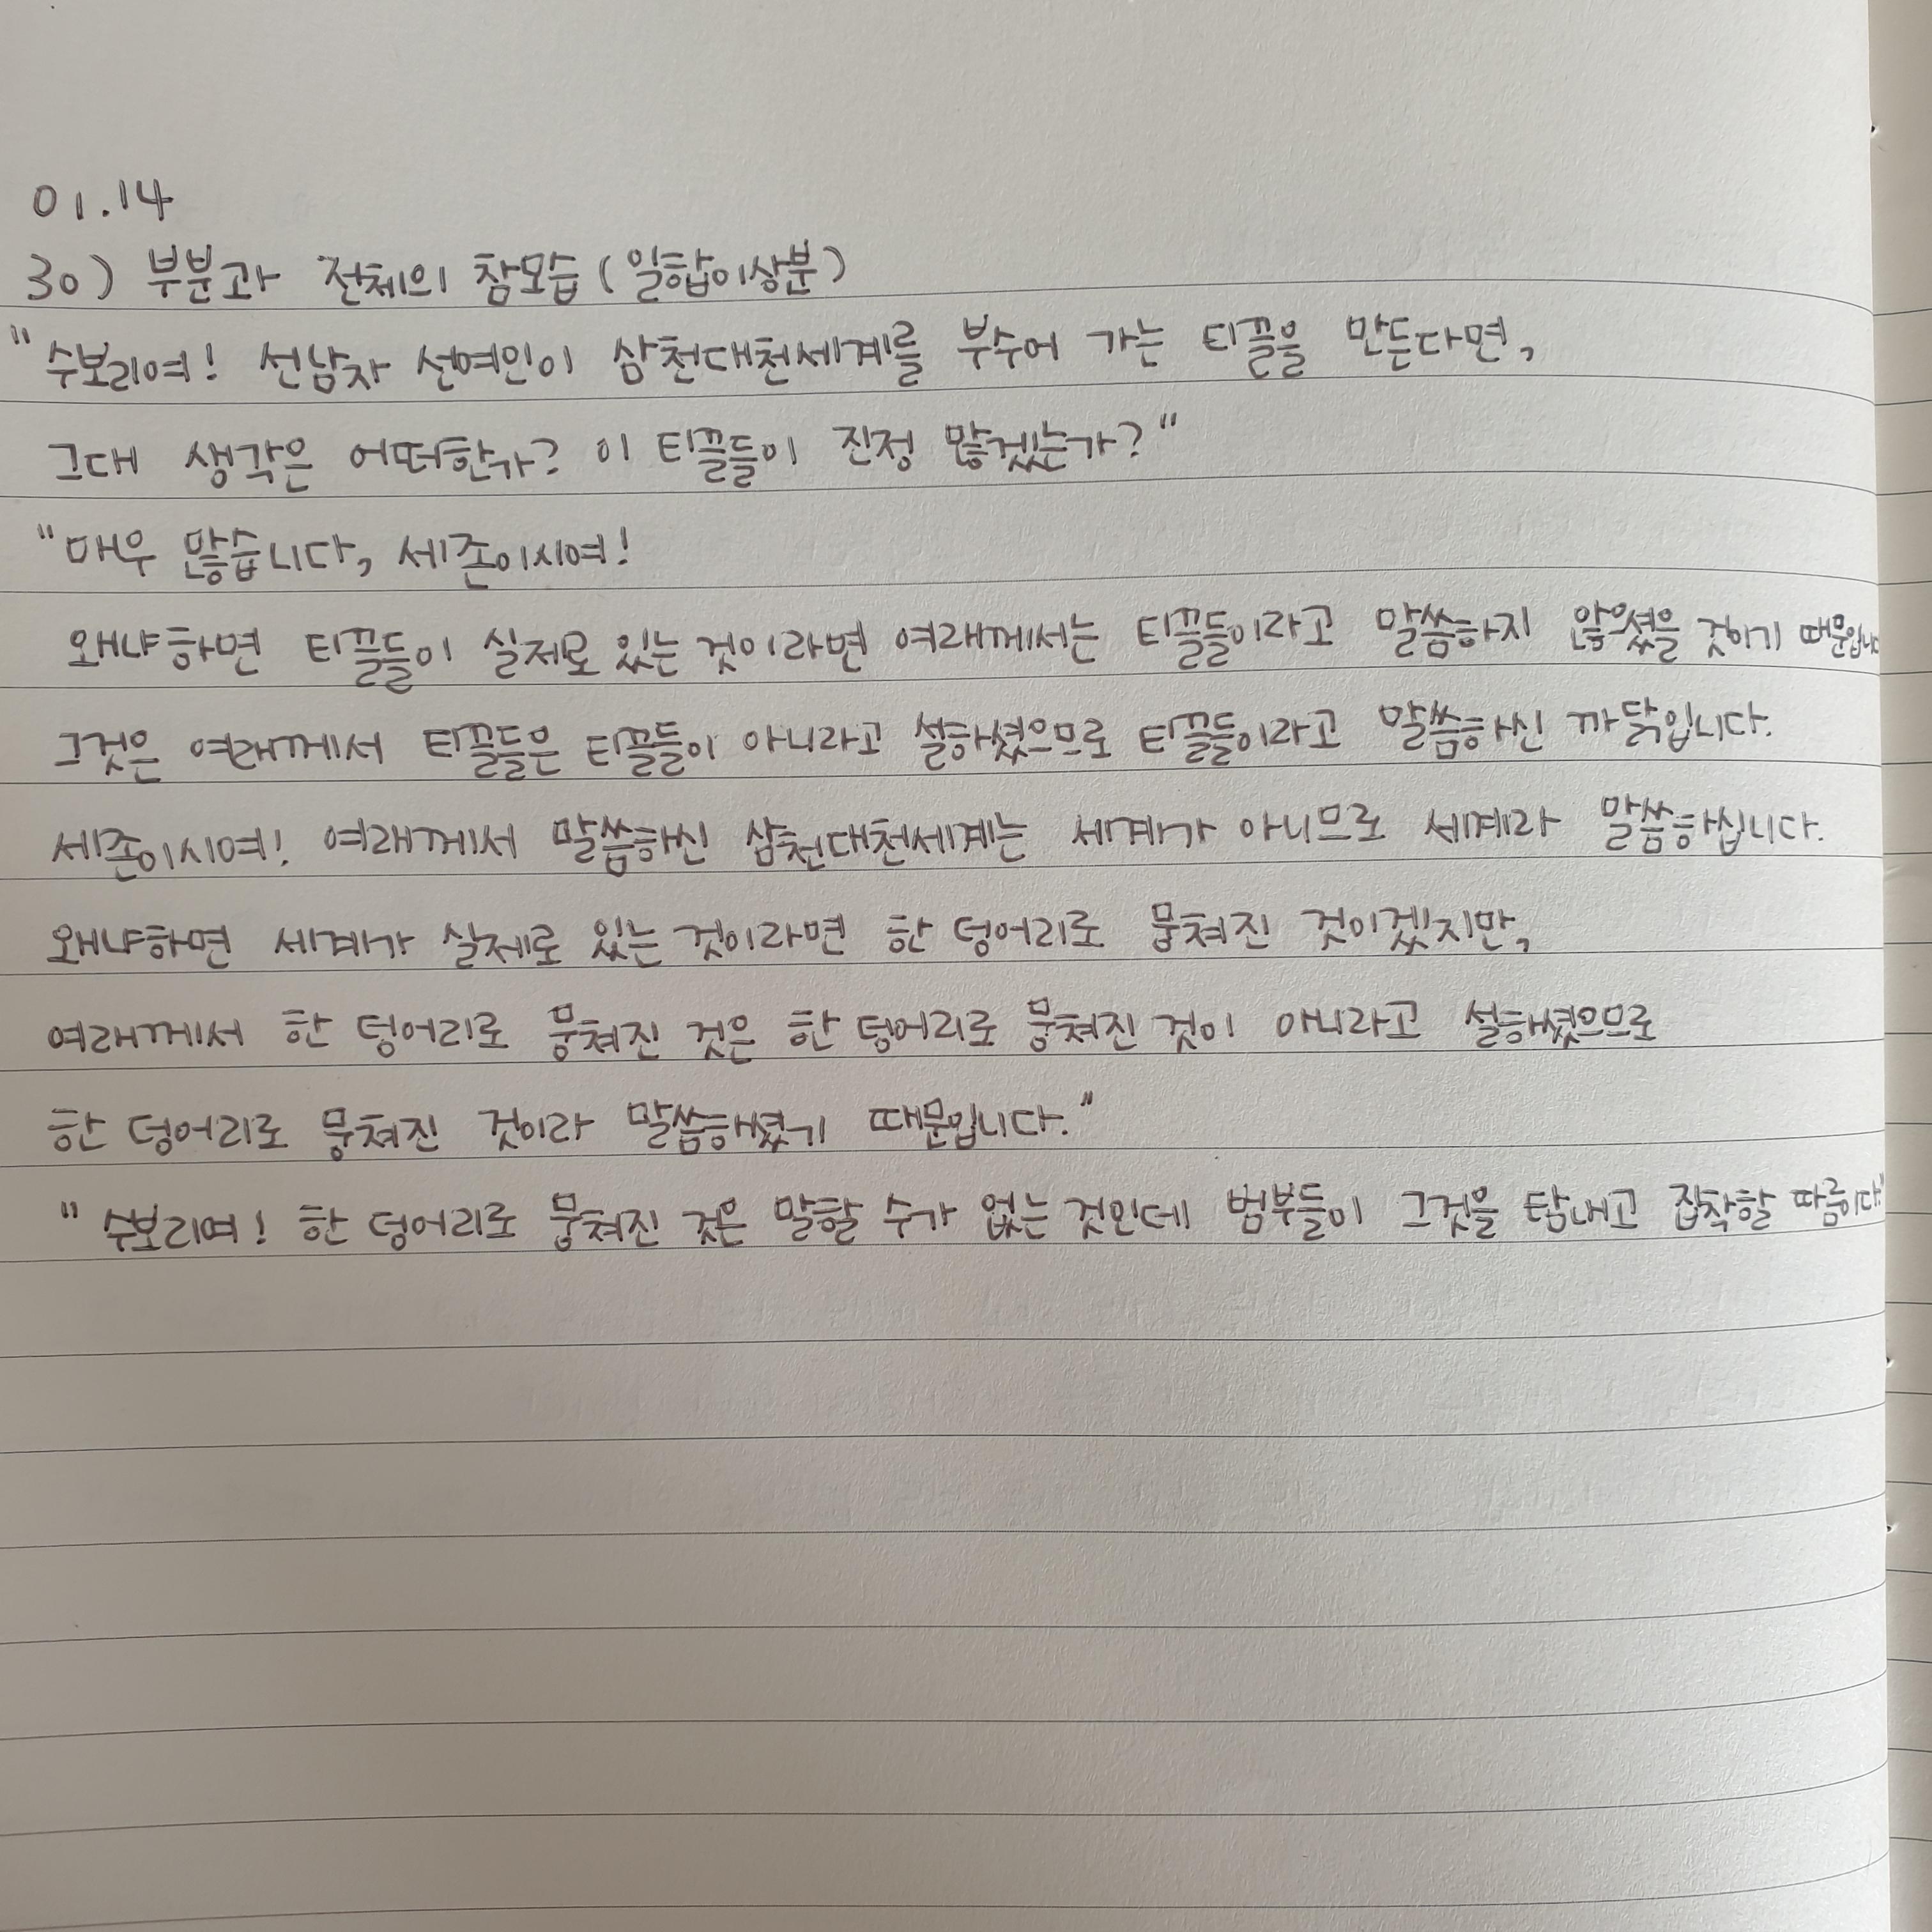 01.14
30) 부분과 전체의 참모습 (일합이상분)
"수보리여! 선남자 선여인이 삼천대천세계를 부수어 가는 티끌을 만든다면,
그대 생각은 어떠한가? 이 티끌들이 진정 많겠는가?"
"매우 많습니다, 세존이시여!
왜냐하면 티끌들이 실제로 있는 것이라면 여래께서는 티끌들이라고 말씀하지 않으셨을 것이기 때문입니다
그것은 여래께서 티끌들은 티끌들이 아니라고 설하셨으므로 티끌들이라고 말씀하신 까닭입니다.
세존이시여! 여래께서 말씀하신 삼천대천세계는 세계가 아니므로 세계라 말씀하십니다.
왜냐하면 세계가 실제로 있는 것이라면 한 덩어리로 뭉쳐진 것이겠지만,
여래께서 한 덩어리로 뭉쳐진 것은 한 덩어리로 뭉쳐진 것이 아니라고 설하셨으므로
한 덩어리로 뭉쳐진 것이라 말씀하셨기 때문입니다."
"수보리여! 한 덩어리로 뭉쳐진 것은 말할 수가 없는 것인데 범부들이 그것을 탐내고 집착할 따름이다."